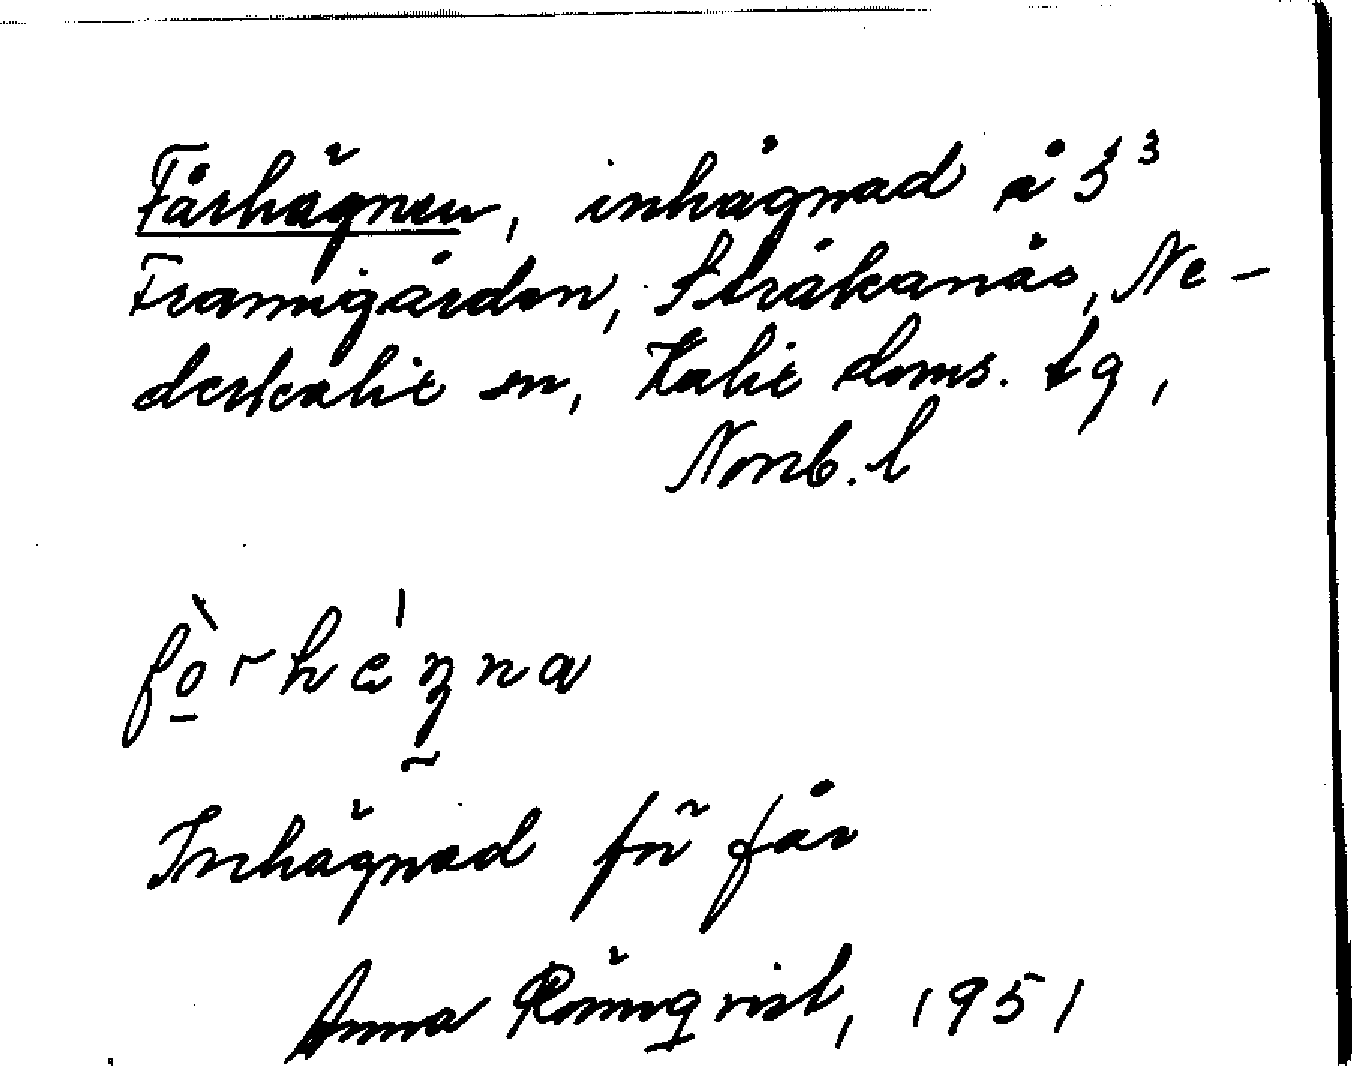 Fårhägnen, inhägnad å 3³
Framigården, Stråkanäs, Ne-
derkalix sn, Kalix doms. tg,
Norrb. l
fò̲rhe̍ŋna
Inhägnad för får
Anna Rönnqvist, 1951